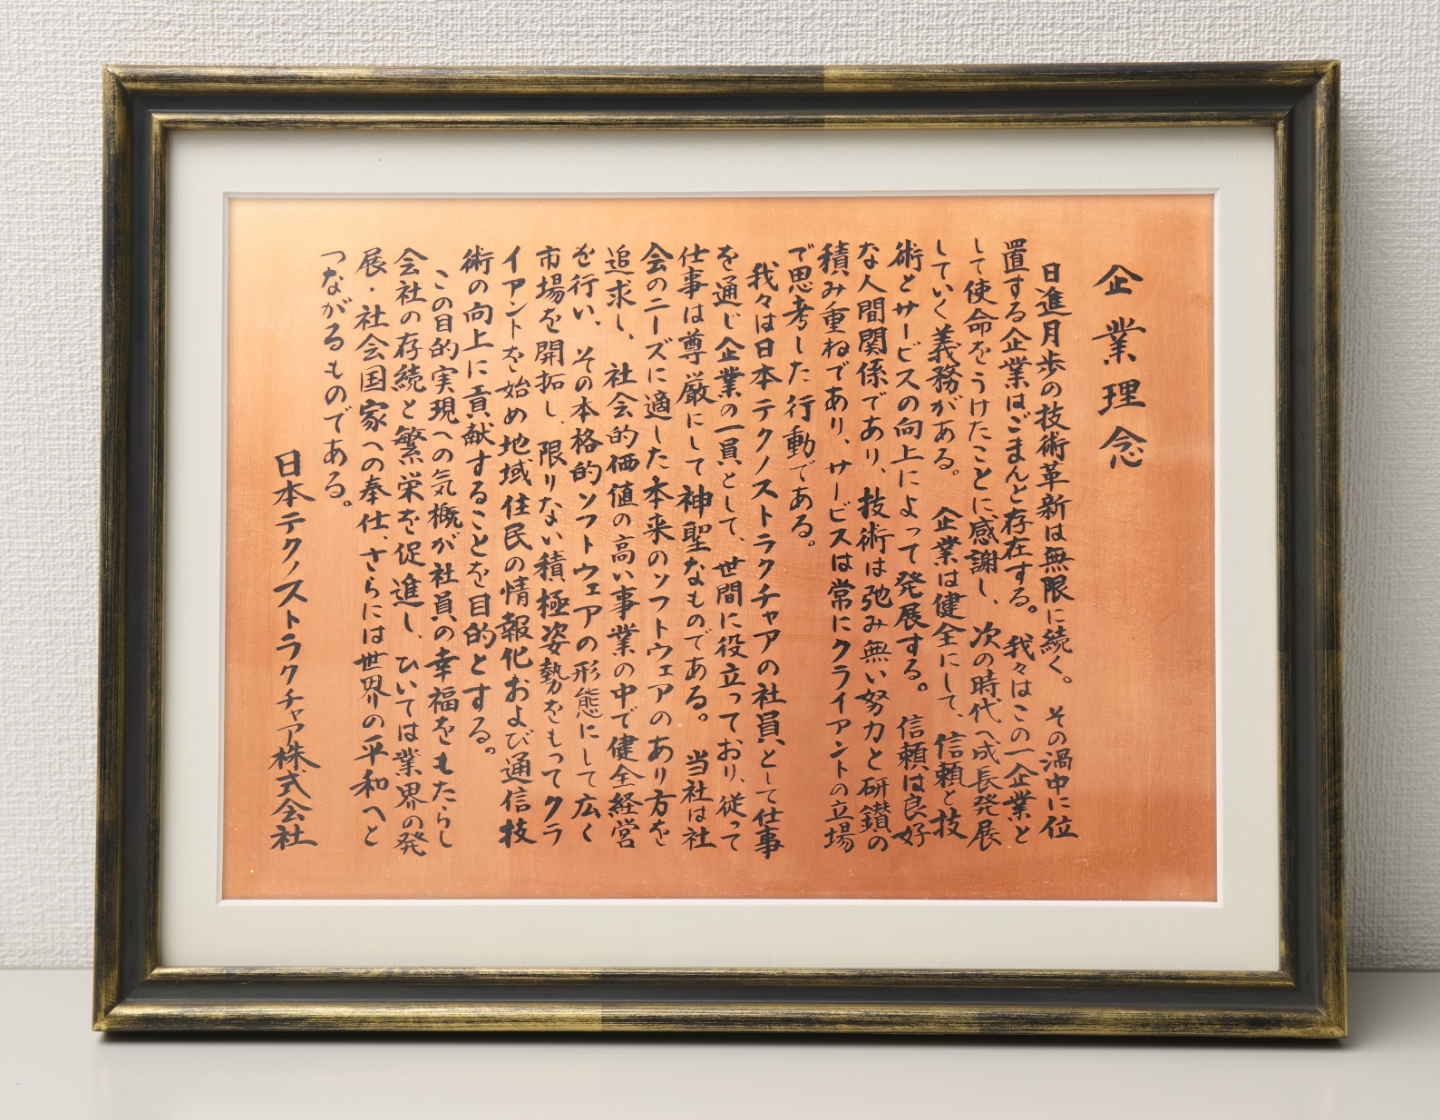 企業理念
日進月歩の技術革新は無限に続く。その渦中に位
置する企業はごまんと存在する。我々はこの一企業と
して使命をうけたことに感謝し、次の時代へ成長発展
していく義務がある。企業は健全にして、信頼と技
術とサービスの向上によって発展する。信頼は良好
な人間関係であり、技術は弛み無い努力と研鑚の
積み重ねであり、サービスは常にクライアントの立場
で思考した行動である。
我々は日本テクノストラクチャアの社員として仕事
を通じ企業の一員として、世間に役立っており、従って
仕事は尊厳にして神聖なものである。当社は社
会のニーズに適した本来のソフトウェアのあり方を
追求し、社会的価値の高い事業の中で健全経営
を行い、その本格的ソフトウェアの形態にして広く
市場を開拓し、限りない積極姿勢をもってクラ
イアントを始め地域住民の情報化および通信技
術の向上に貢献することを目的とする。
この目的実現への気概が社員の幸福をもたらし
会社の存続と繁栄を促進し、ひいては業界の発
展・社会国家への奉仕、さらには世界の平和へと
つながるものである。
日本テクノストラクチャア株式会社